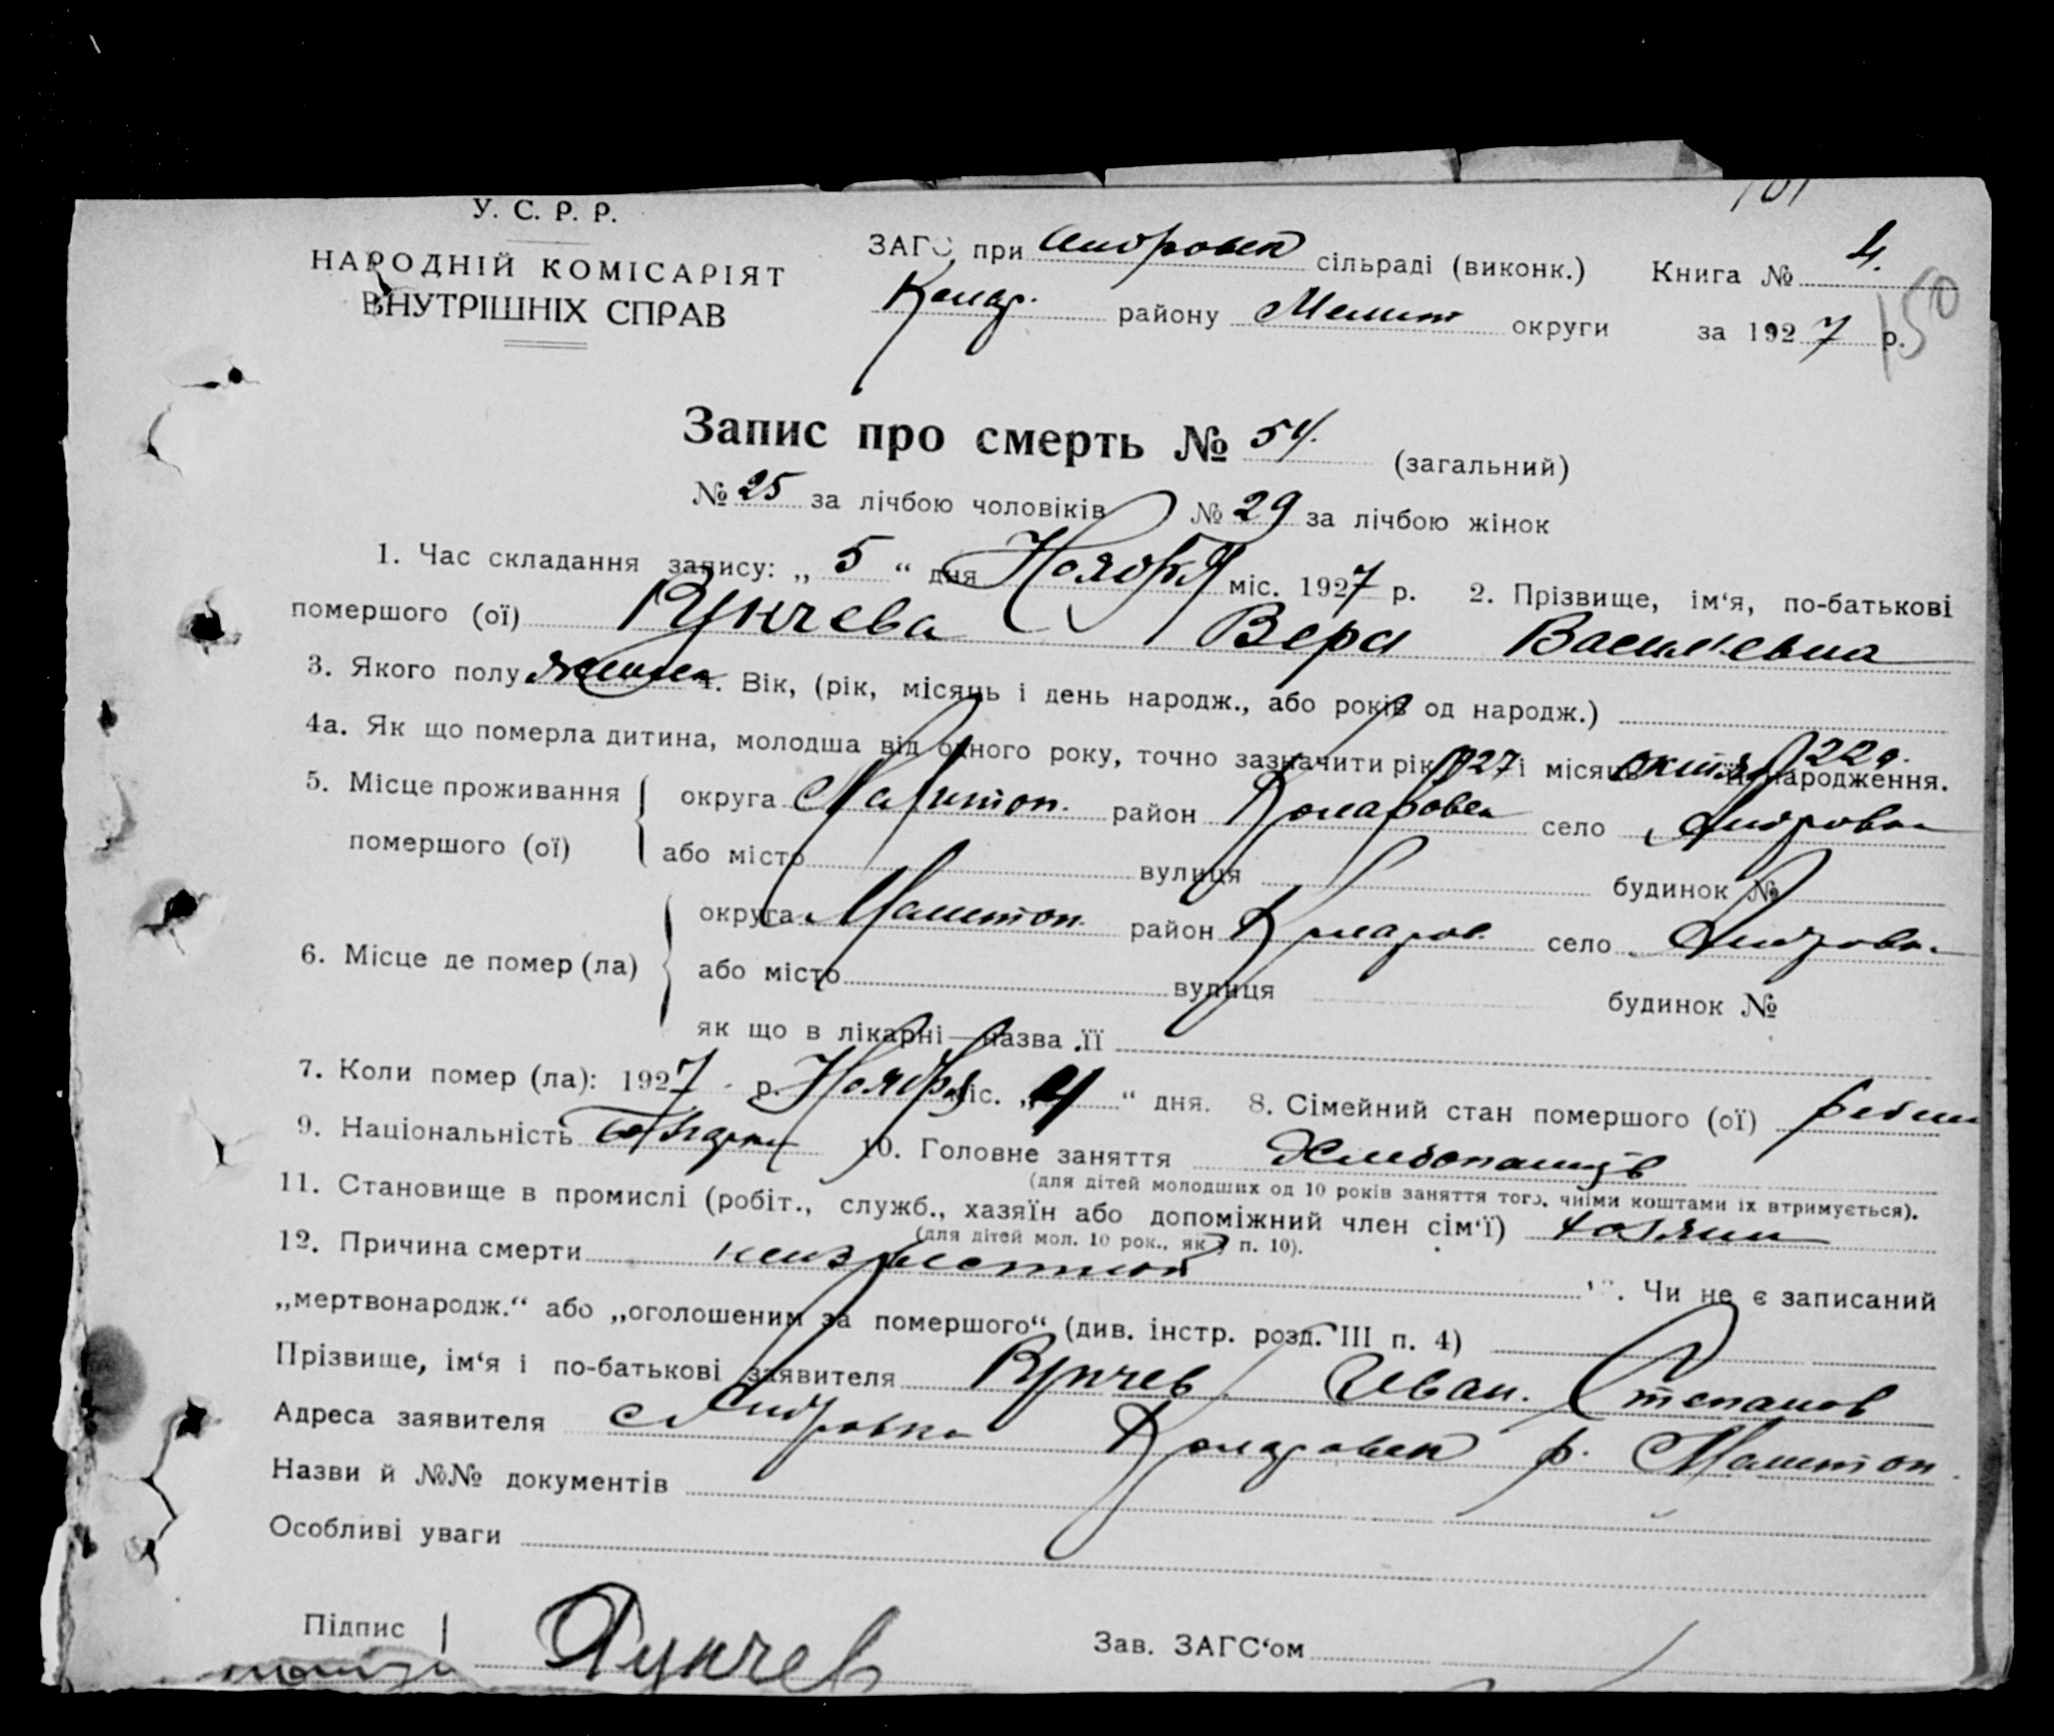 У. С. Р. Р.
НАРОДНІЙ КОМІСАРІЯТ
ВНУТРІШНІХ СПРАВ
ЗАГС при Андровск сільраді (виконк.) Книга № 4.
Комар. району Мелит округи за 1927 р.
150
Запис про смерть № 54. (загальний)
№ 25 за лічбою чоловіків № 29 за лічбою жінок
1. Час складання запису: „ 5 “ дня Ноября міс. 1927 р. 2. Прізвище, ім‘я, по-батькові
помершого (ої) Рунчева Вера Васильевна
3. Якого полу 4. Вік, (рік, місяць і день народж., або років од народж.)
4а. Як що померла дитина, молодша від одного року, точно зазначити рік 1927 і місяць октяб 22д. народження.
5. Місце проживання помершого (ої) округа Мелитоп. район село Андровка
або місто вулиця будинок №
6. Місце де помер (ла) округа Мелитоп. район село Андровка
або місто вулиця будинок №
як що в лікарні—назва її
7. Коли помер (ла): 1927 р. Ноября міс. „ 4 “ дня. 8. Сімейний стан помершого (ої)
9. Національність 10. Головне заняття
(для дітей молодших од 10 років заняття того, чиїми коштами їх втримується).
11. Становище в промислі (робіт., служб., хазяїн або допоміжний член сім‘ї) хозяин
(для дітей мол. 10 рок., як у п. 10).
12. Причина смерти неизвестной Чи не є записаний
„мертвонародж.“ або „оголошеним за помершого“ (див. інстр. розд. III п. 4)
Прізвище, ім‘я і по-батькові заявителя Рунчев Иван. Степанов
Адреса заявителя с Андровка р. Мелитоп.
Назви й №№ документів
Особливі уваги
Підпис Рунчев Зав. ЗАГС‘ом